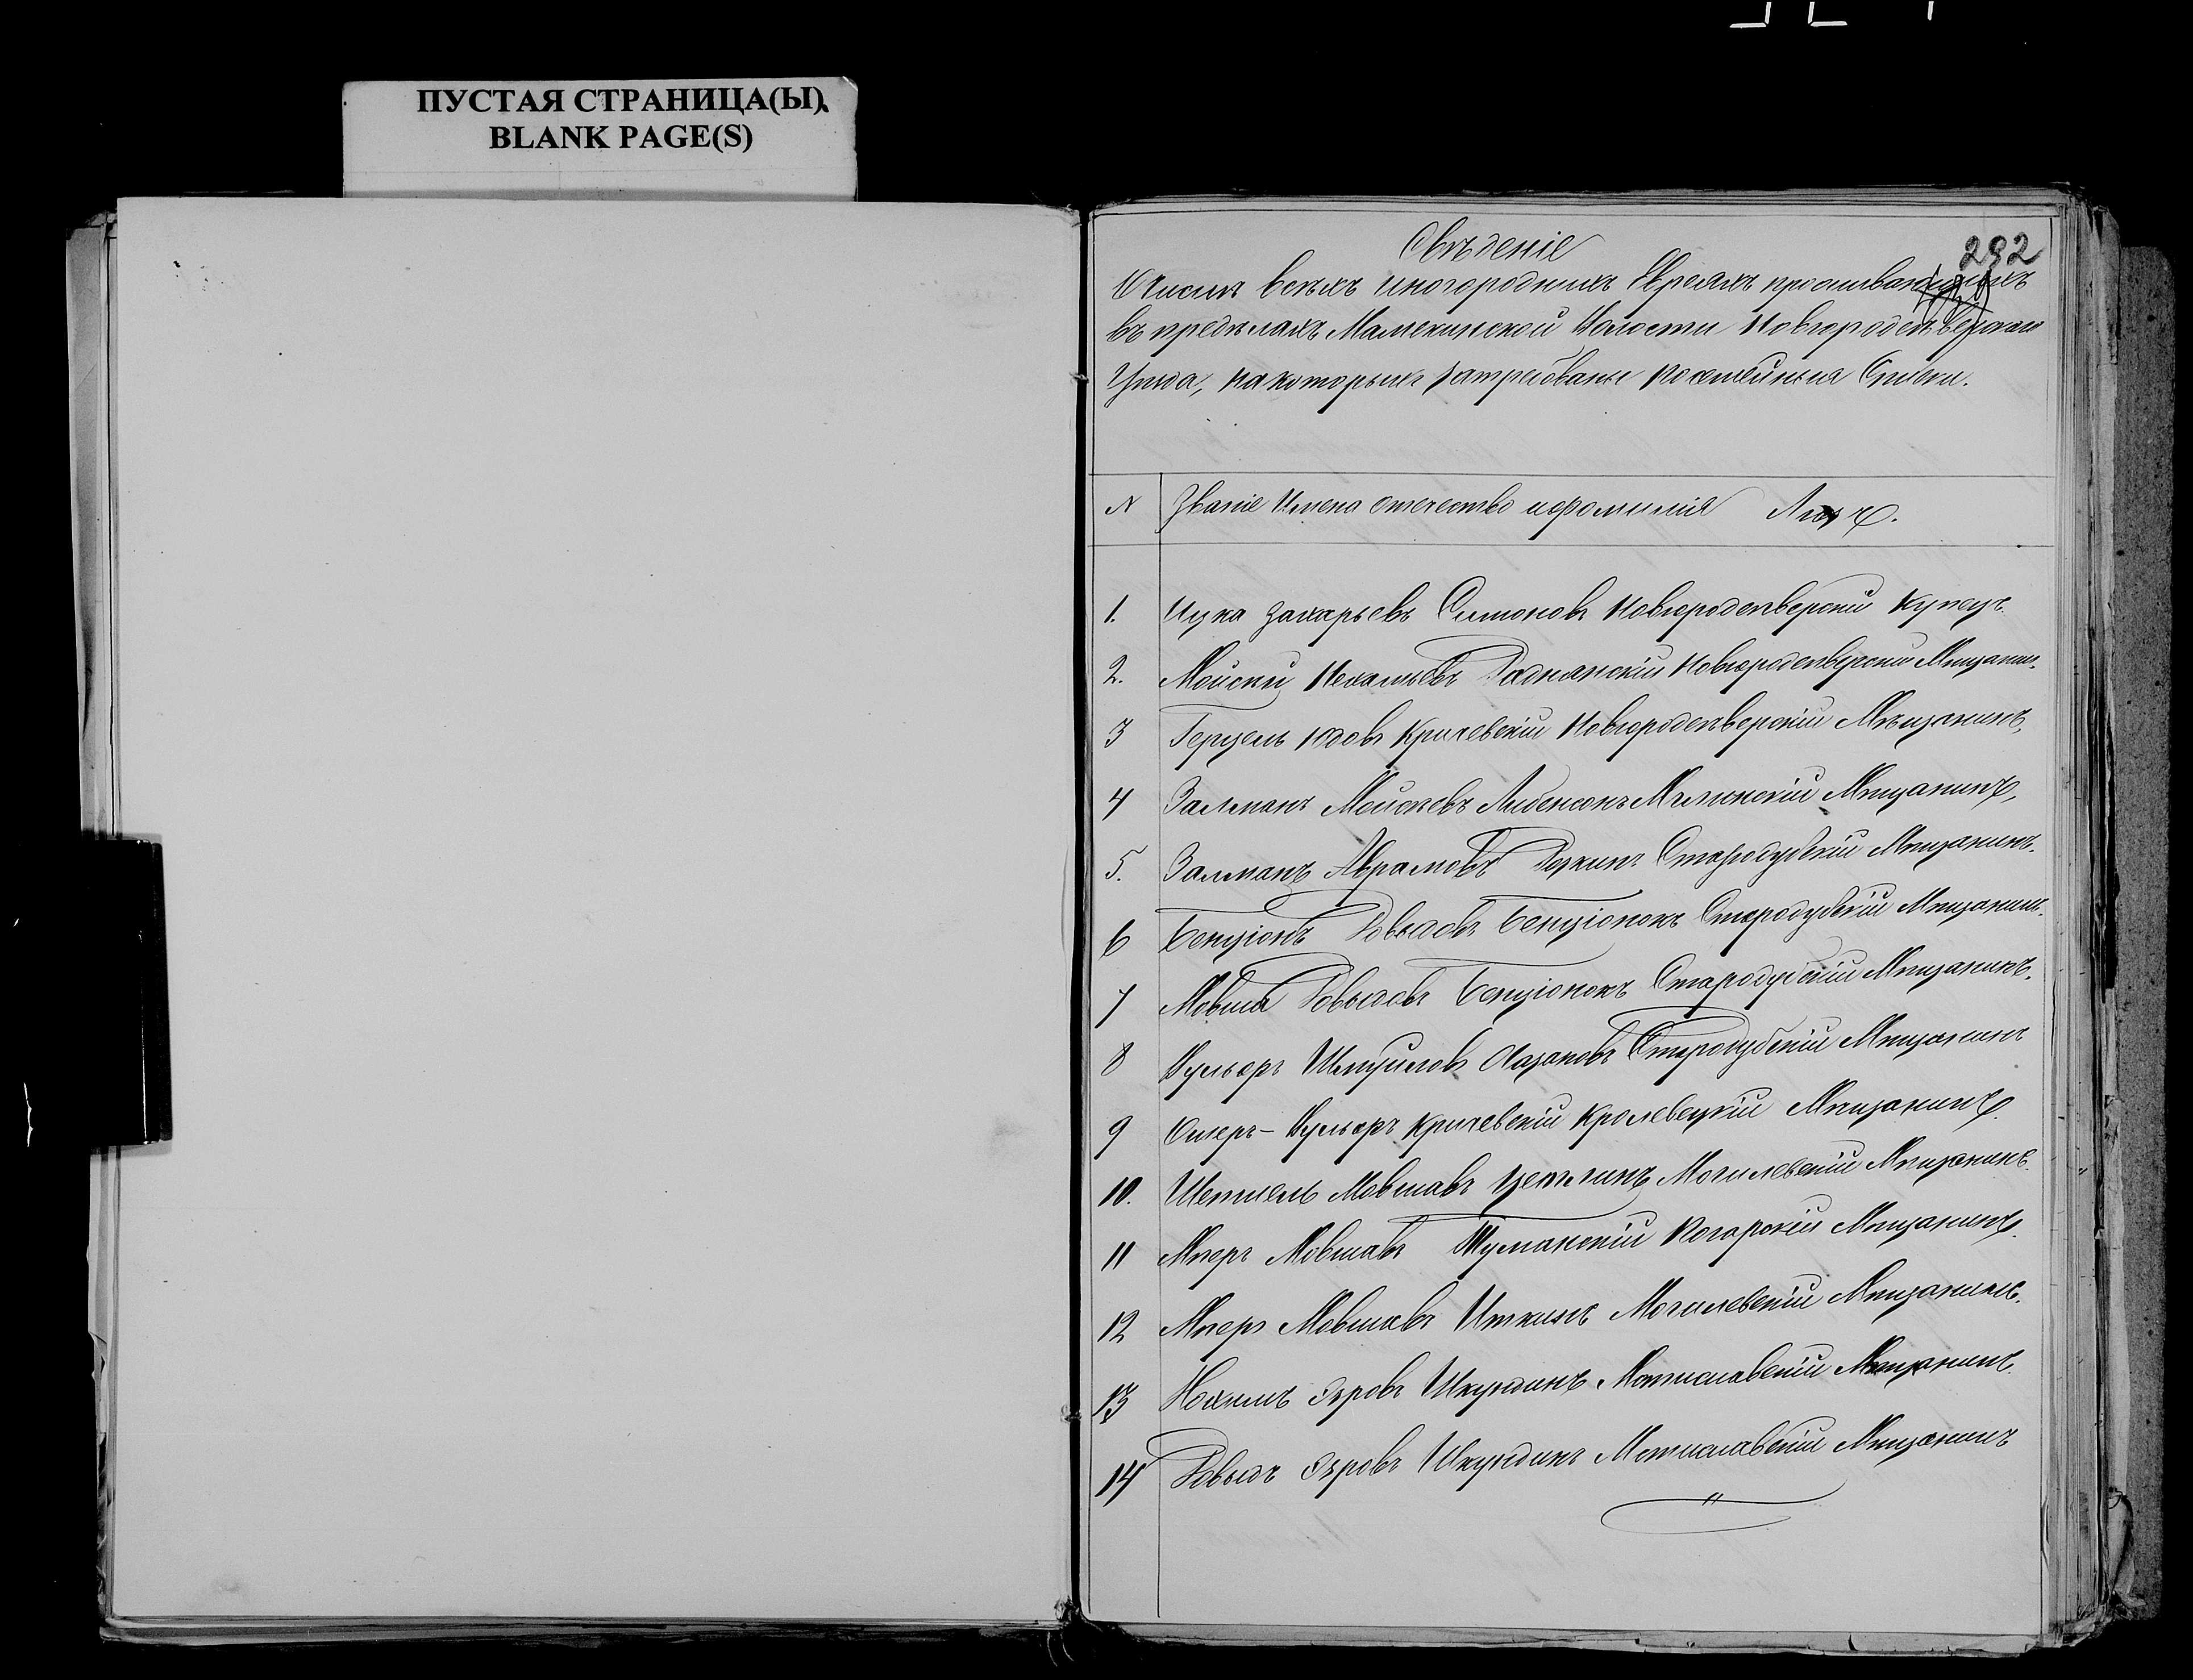 ПУСТАЯ СТРАНИЦА(Ы),
BLANK PAGE(S)
292
Свѣденіе
О числѣ всѣхъ иногородныхъ Евреяхъ проживающихъ
въ предѣлахъ Мамекинской Волости Новгородсѣверскаго
Уѣзда, на которыхъ затребованы посемѣйныя Списки.
N Званіе Имена отечество и фомилія Лицъ.
1. Ицка Захарьевъ Симоновъ Новгородсѣверскій Купецъ
2. Мойсей Нехамьевъ Раднянскій Новгородсѣверскій Мѣщанин.
3 Герцель Юдовъ Кричевскій Новгородсѣверскій Мѣщанинъ,
4 Залманъ Мойсеевъ Либенсонъ Мглинскій Мѣщанинъ,
5. Залманъ Аврамовъ Стародубскій Мѣщанинъ.
6 Бенціонъ Довыдовъ Бенціонокъ Стародубскій Мѣщанин.
7 Мовша Довыдовъ Бенціонокъ Стародубскій Мѣщанинъ.
8 Вульфъ Шмуйловъ Хазановъ Стародубскій Мѣщанинъ
9 Ошеръ-Вульфъ Кричевскій Кролевецкій Мѣщанинъ
10. Шепшель Мовшавъ Цетлинъ Могилевскій Мѣщанинъ.
11 Мееръ Мовшавъ Шуманскій Погарскій Мѣщанинъ.
12 Мееръ Мовшавъ Иткинъ Могилевскій Мѣщанинъ.
13 Нохимъ Эзровъ Шкундинъ Мстиславскій Мѣщанинъ.
14 Довыдъ Эзровъ Шкундинъ Мстиславскій Мѣщанинъ